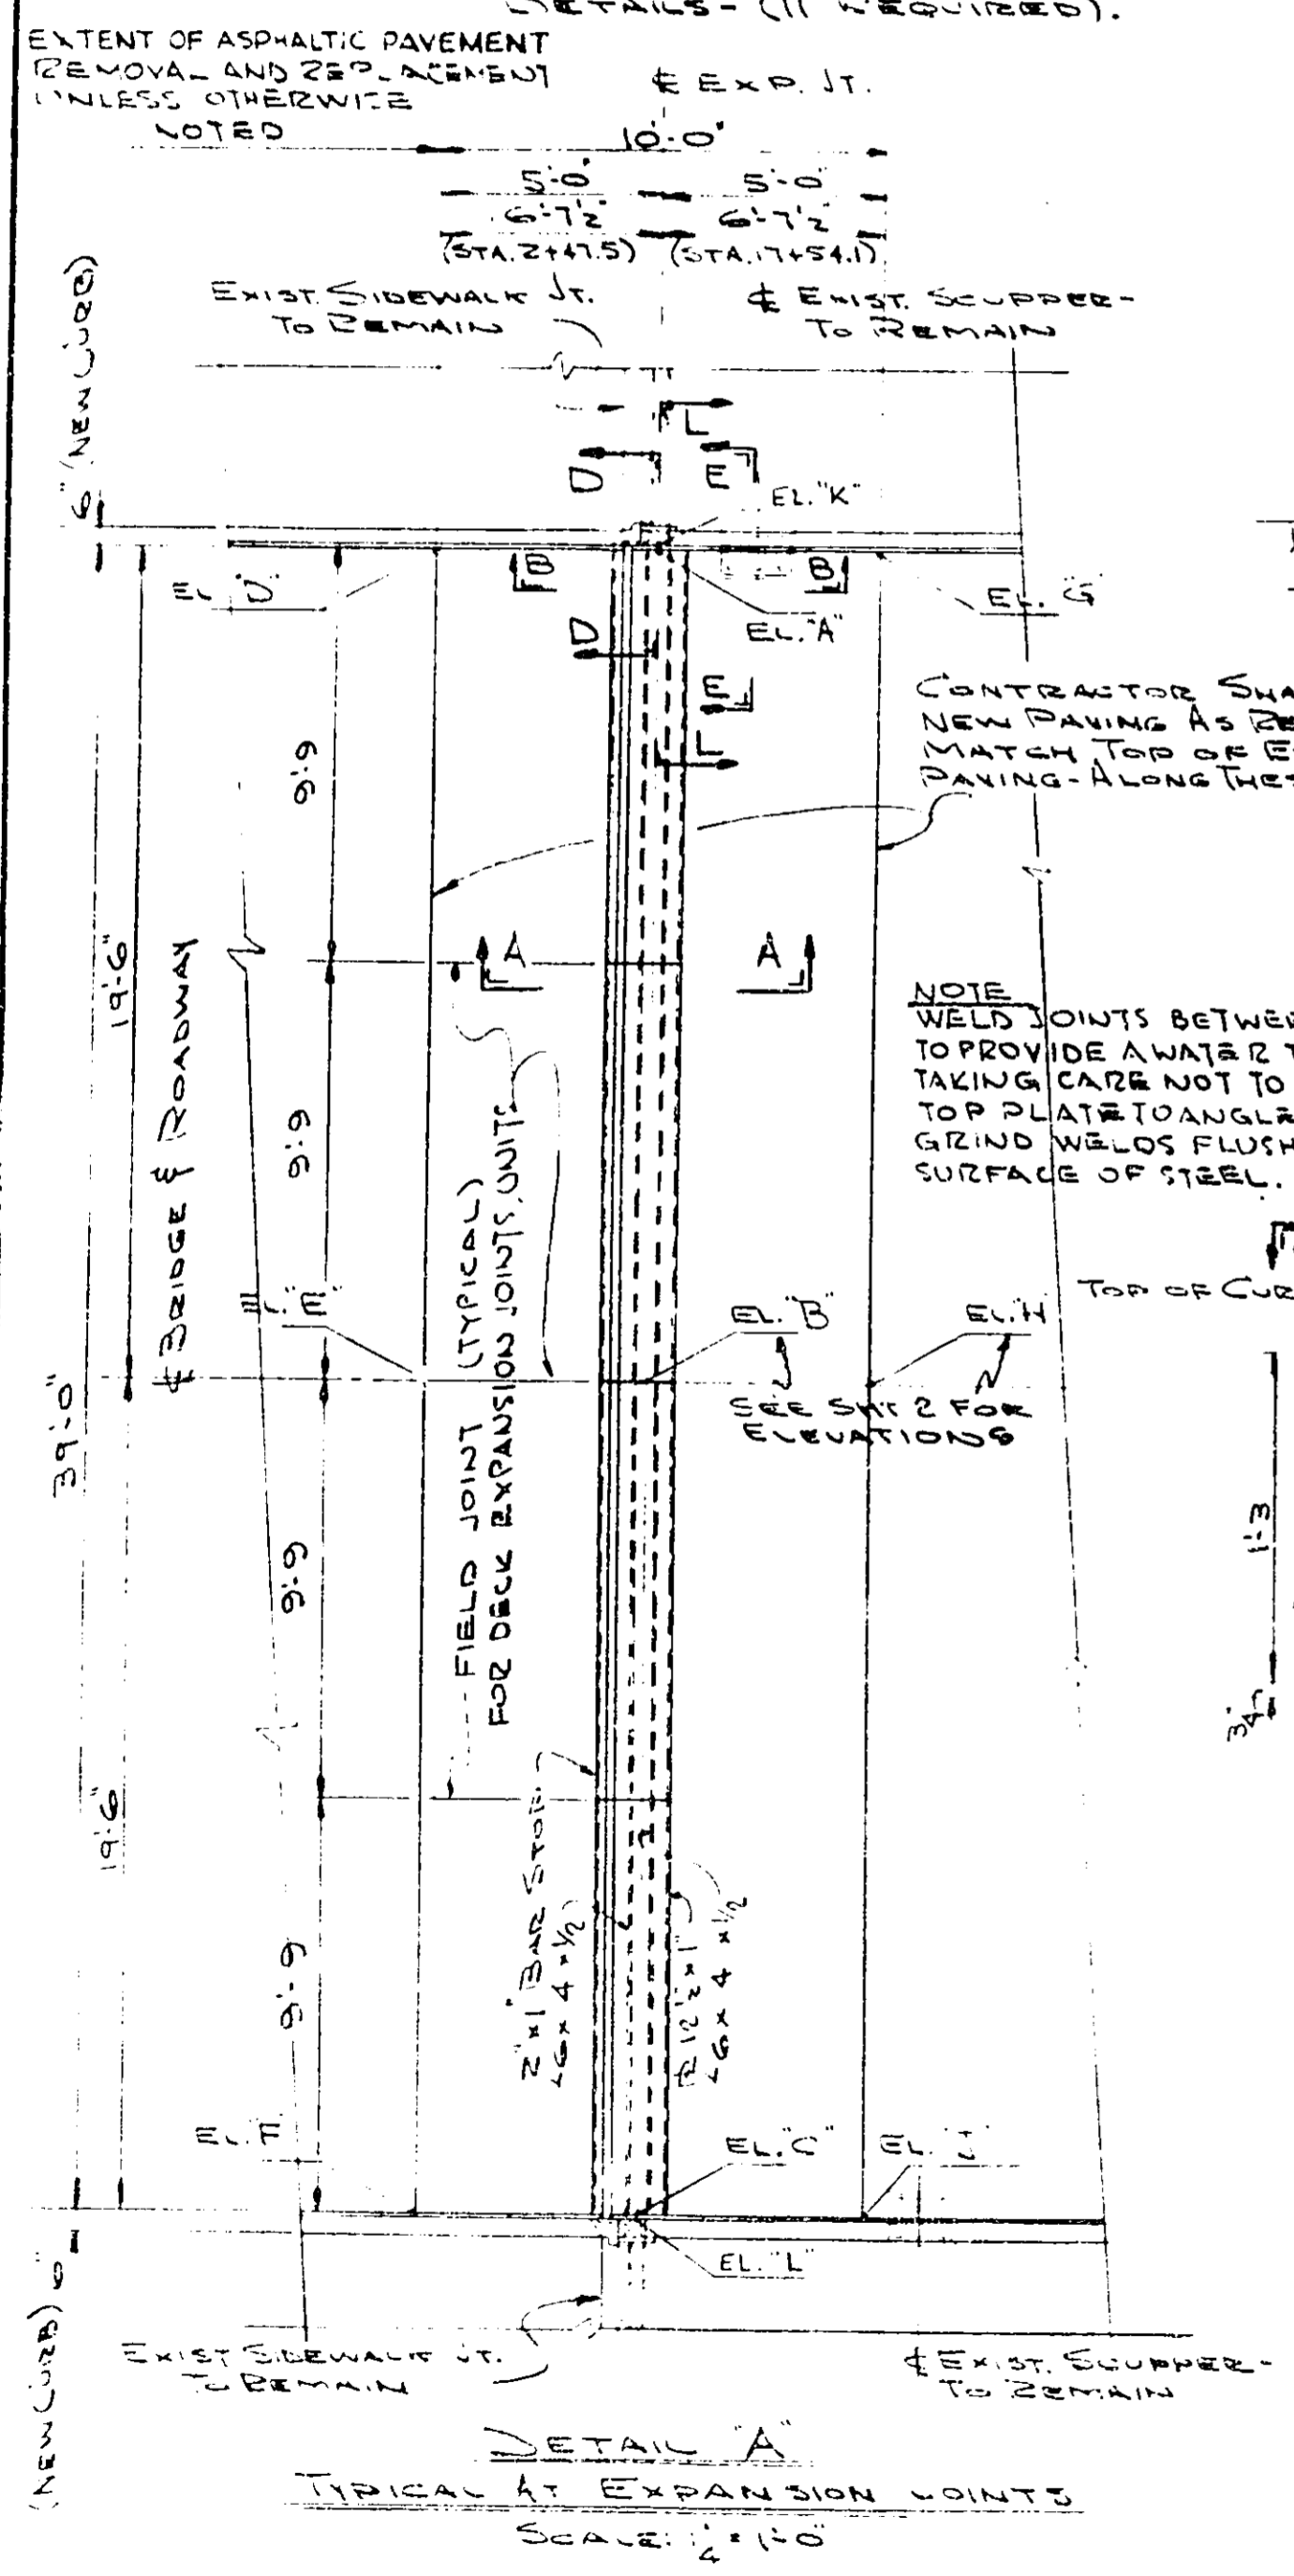 DETAILS - (11 REQUIRED).
EXTENT OF ASPHALTIC PAVEMENT
REMOVAL AND REPLACEMENT
UNLESS OTHERWISE
NOTED
℄ EXP. JT.
10'-0"
5'-0" 5'-0"
6'-7½" 6'-7½"
(STA. 2+47.5) (STA. 17+54.1)
EXIST. SIDEWALK JT.
TO REMAIN
℄ EXIST. SCUPPER-
TO REMAIN
6" (NEW CURB)
L
D E
EL. "K"
B B
EL. "D"
EL. "A"
EL. "G"
D
E
L
CONTRACTOR
NEW PAVING AS
MATCH TOP OF
PAVING-ALONG
9'-9
19'-6"
A A
NOTE
WELD JOINTS
TO PROVIDE A WATER
TAKING CARE NOT TO
TOP PLATE TO ANGLE
GRIND WELDS FLUSH
SURFACE OF STEEL.
℄ BRIDGE & ROADWAY
9'-9
FIELD JOINT (TYPICAL)
FOR DECK EXPANSION JOINTS, UNITS
TOP OF
EL. "E"
EL. "B"
EL. "H"
SEE SHT 2 FOR
ELEVATIONS
39'-0"
9'-9
1'-3
¾"
19'-6"
2" x 1" BAR STOP
∠ 6 x 4 x ½
℄ 12½ x 1"
∠ 6 x 4 x ½
9'-9
EL. "F"
EL. "C"
EL. "J"
EL. "L"
(NEW CURB) 6"
EXIST SIDEWALK JT.
TO REMAIN
℄ EXIST. SCUPPER-
TO REMAIN
DETAIL "A"
TYPICAL AT EXPANSION JOINTS
SCALE: ¼" = 1'-0"